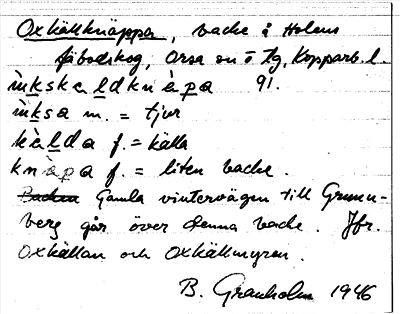 Oxkällknäppa, backe å Holens
fäbodskog, Orsa sn o. Hg, Kopparb. l.
ìn̠k̠skęl̠dknèp̠a 91.
ìn̠k̠sa m. = tjur
kèl̠da f. = källa
knàp̠a f. = liten backe.
Gamla vintervägen till Grunu-
berg går över denna backe. Jfr.
Oxkällan och Oxkällmyren.
B. Granholm 1946